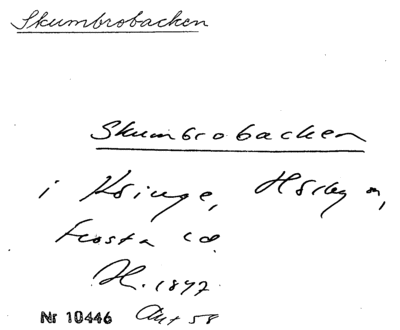 Skumbrobacken
Skumbrobacken
i Kringe, Hörby sn,
Frosta hd.
H. 1847
Nr 10446 Aut 58